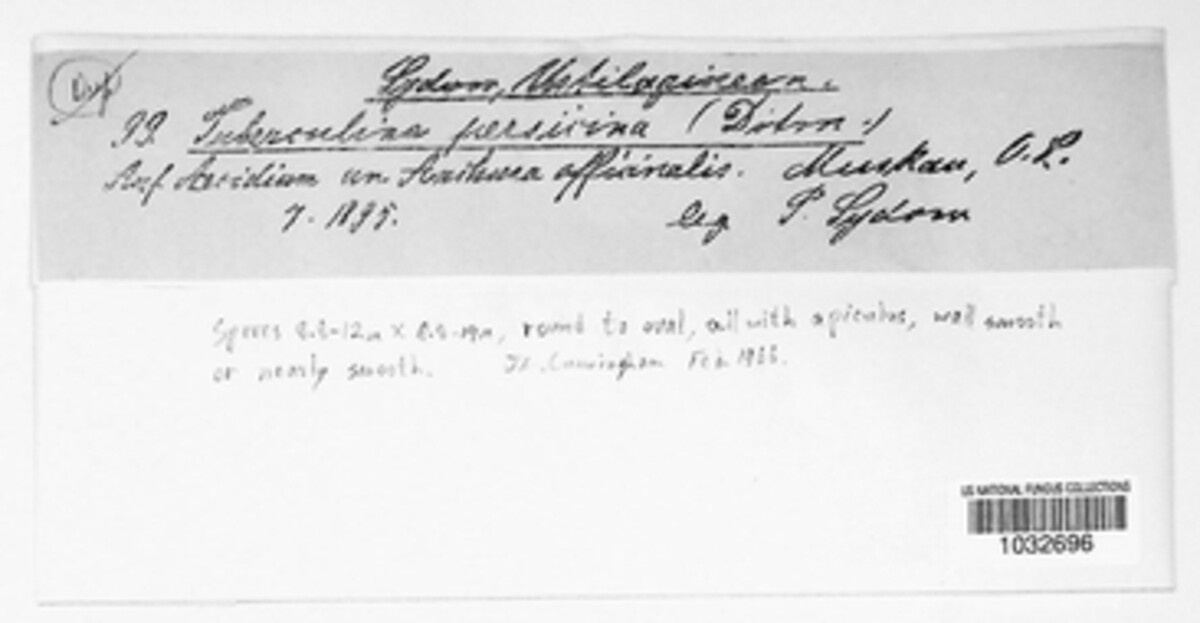 Dupl
Sydow, Ustilagineen.
99. Tuberculina persicina (Ditm.)
Auf Aecidium an Anchusa officinalis. Muskau, O. L.
7. 1895. leg P. Sydow
Spores 8.8-12µ x 8.8-19µ, round to oval, all with apiculus, wall smooth
or nearly smooth. Cunningham Feb 1966.
US NATIONAL FUNGUS COLLECTIONS
1032696